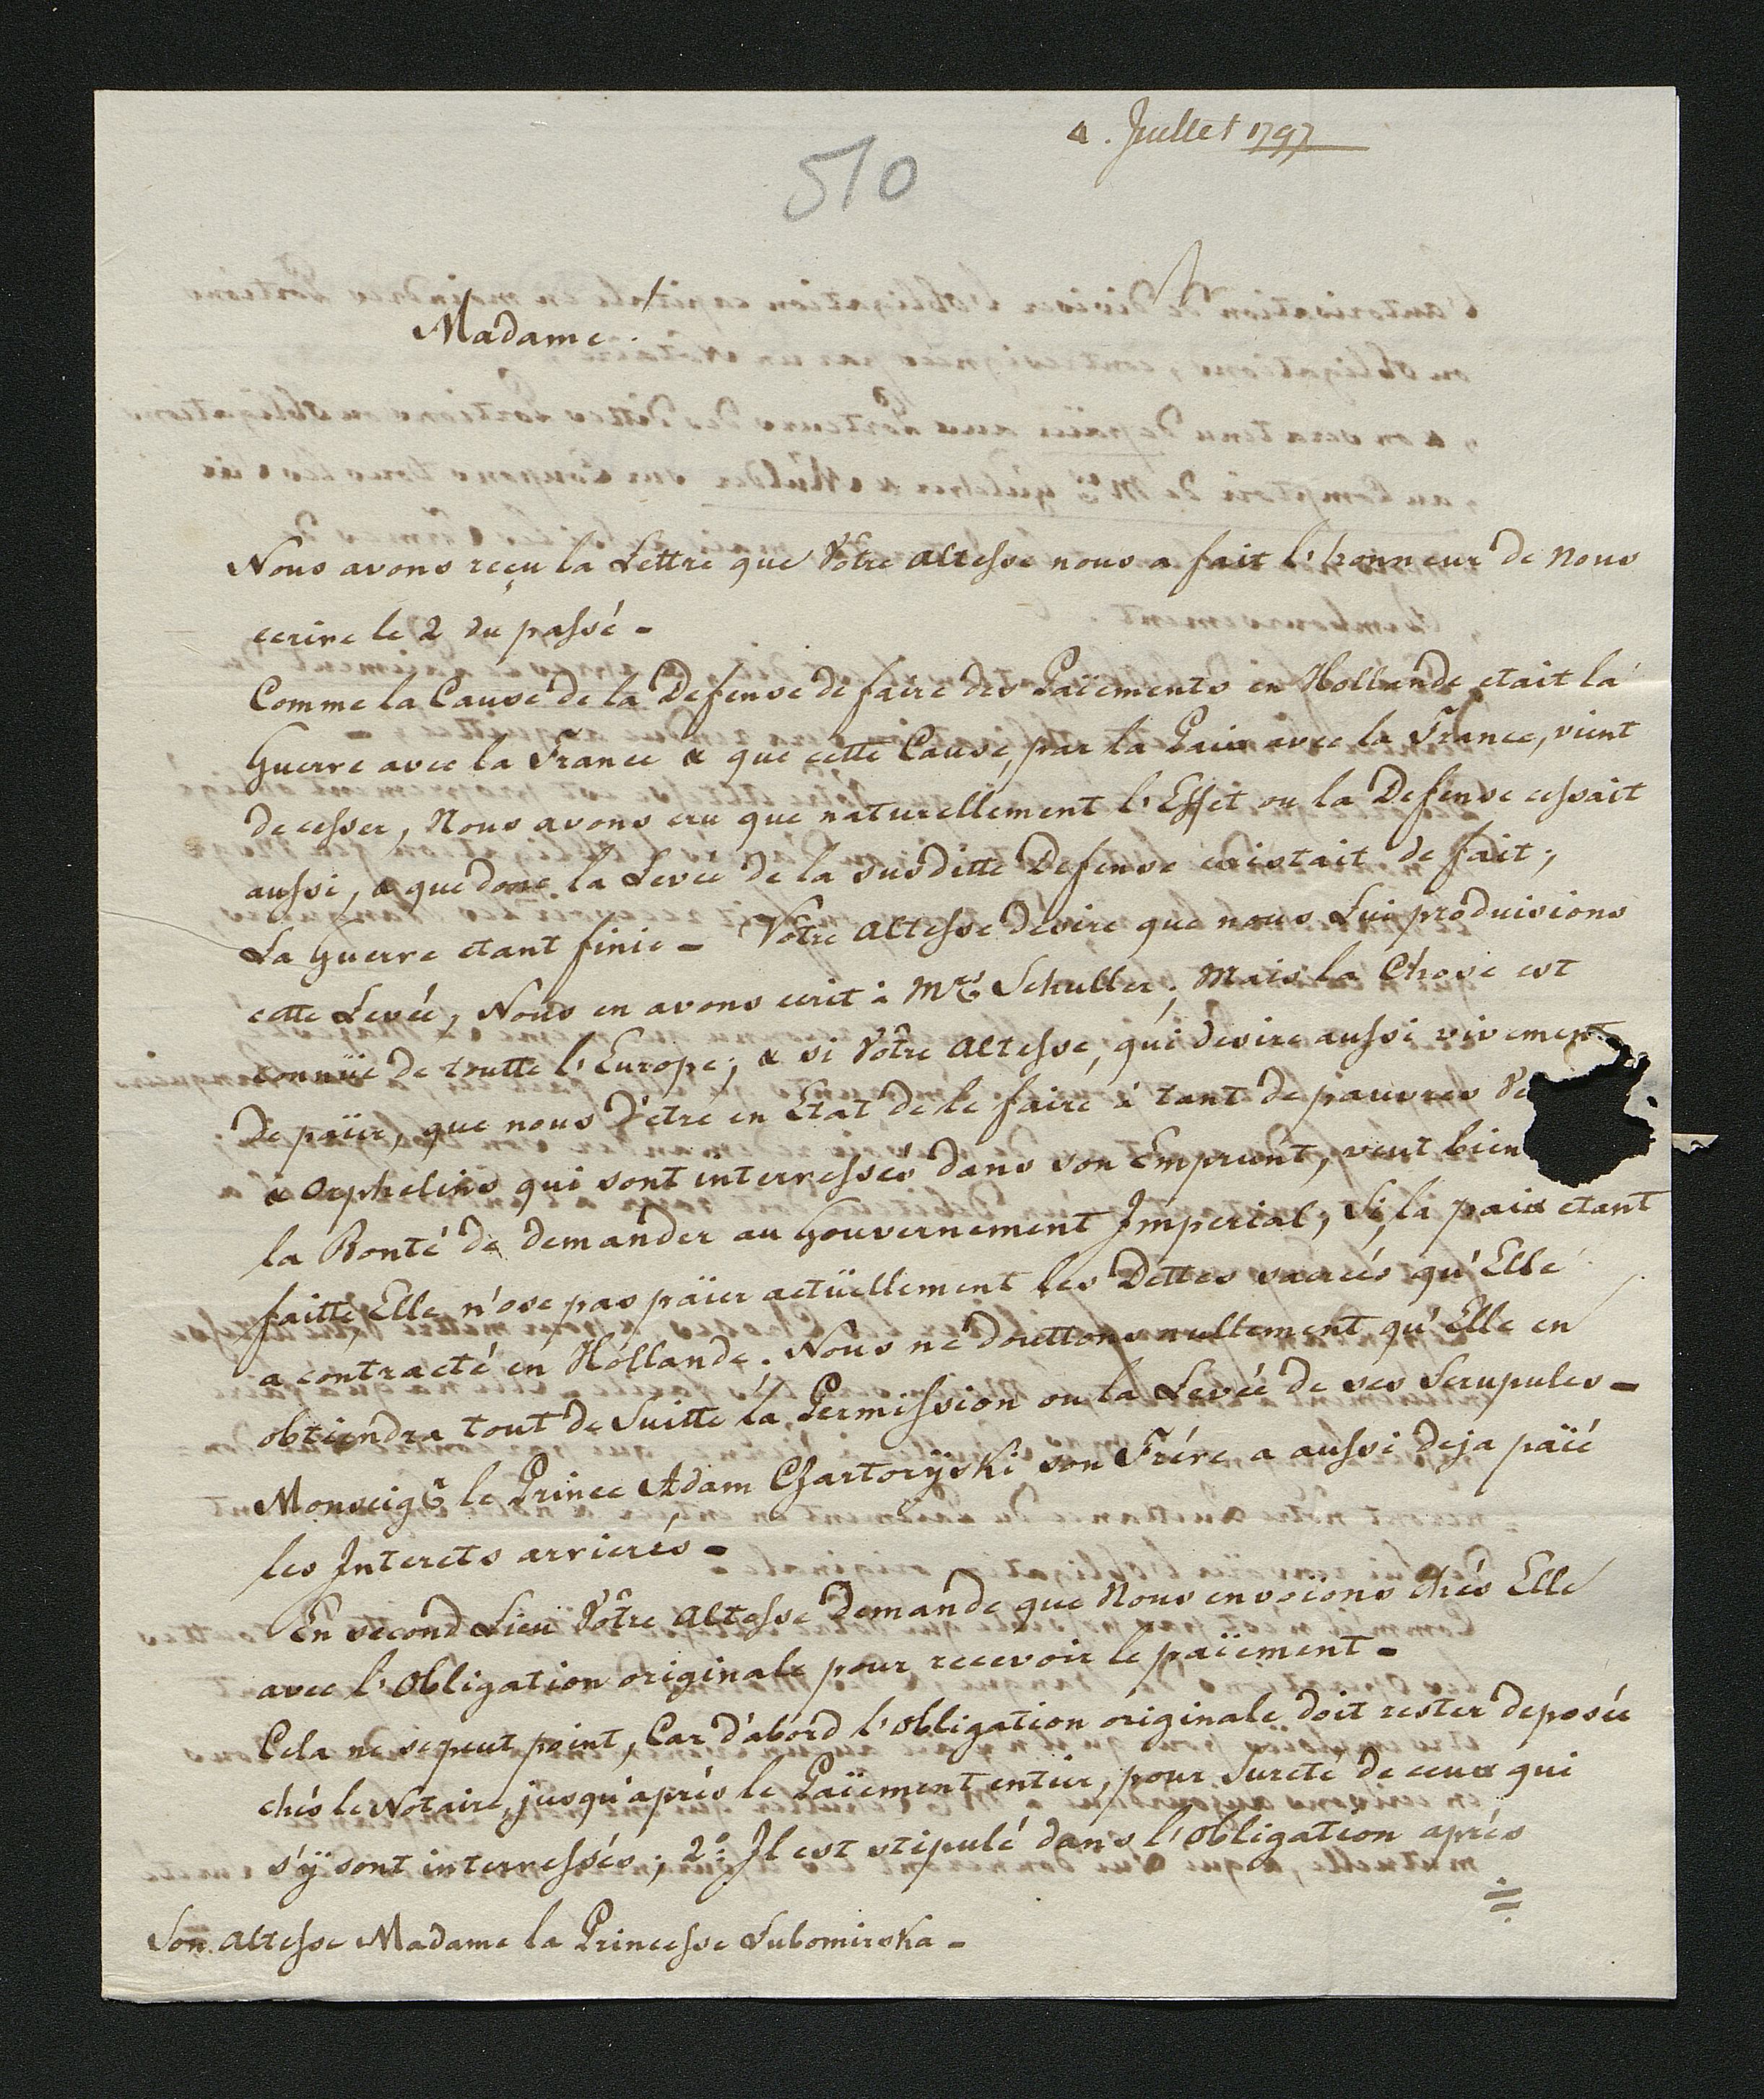 4. Juillet 1797
510
Madame!
Nous avons reçu la Lettre que Vôtre Altesse nous a fait l'honneur de nous
ecrire le 2 du passé -
Comme la Cause de la Defense de faire des Païements en Hollande etait la
Guerre avec la France & que cette Cause, par la Paix avec la France, vient
de cesser, Nous avons cru que naturellement l'Effet ou la Defense cessait
aussi, & que donc la Levée de la susditte Defense existait de fait,
La Guerre etant finie - Vôtre Altesse desire que nous Lui produisions
cette Levée, Nous en avons ecrit à Mrs Schuller; Mais la Chose est
connüe de toutte l'Europe; & si Vôtre Altesse, qui desire aussi vivement
de païer, que nous d'être en Etat de le faire à tant de pauvres Ve
& Orphelins qui sont interressés dans son Emprunt, veut bien
la Bonté de demander au Gouvernement Imperial, Si, la paix etant
faitte, Elle n'ose pas païer actüellement les Dettes sacrées qu'Elle
a contracté en Hollande. Nous ne douttons nullement qu'Elle en
obtiendra tout de Suitte la Permission ou la Levée de ses Scrupules -
Monseigr le Prince Adam Czartorÿski son Frére a aussi deja païé
les Interets arrierés -
En second Lieu Vôtre Altesse demande que Nous envoions chés Elle
avec l'Obligation originale pour recevoir le païement -
Cela ne se peut point, Car d'abord l'Obligation originale doit rester deposée
chés le Notaire, jusqu'aprés le Païement entier, pour Sureté de ceux qui
s'ÿ sont interressés; 2º Il est stipulé dans l'Obligation aprés
Son Altesse Madame la Princesse Lubomirska -